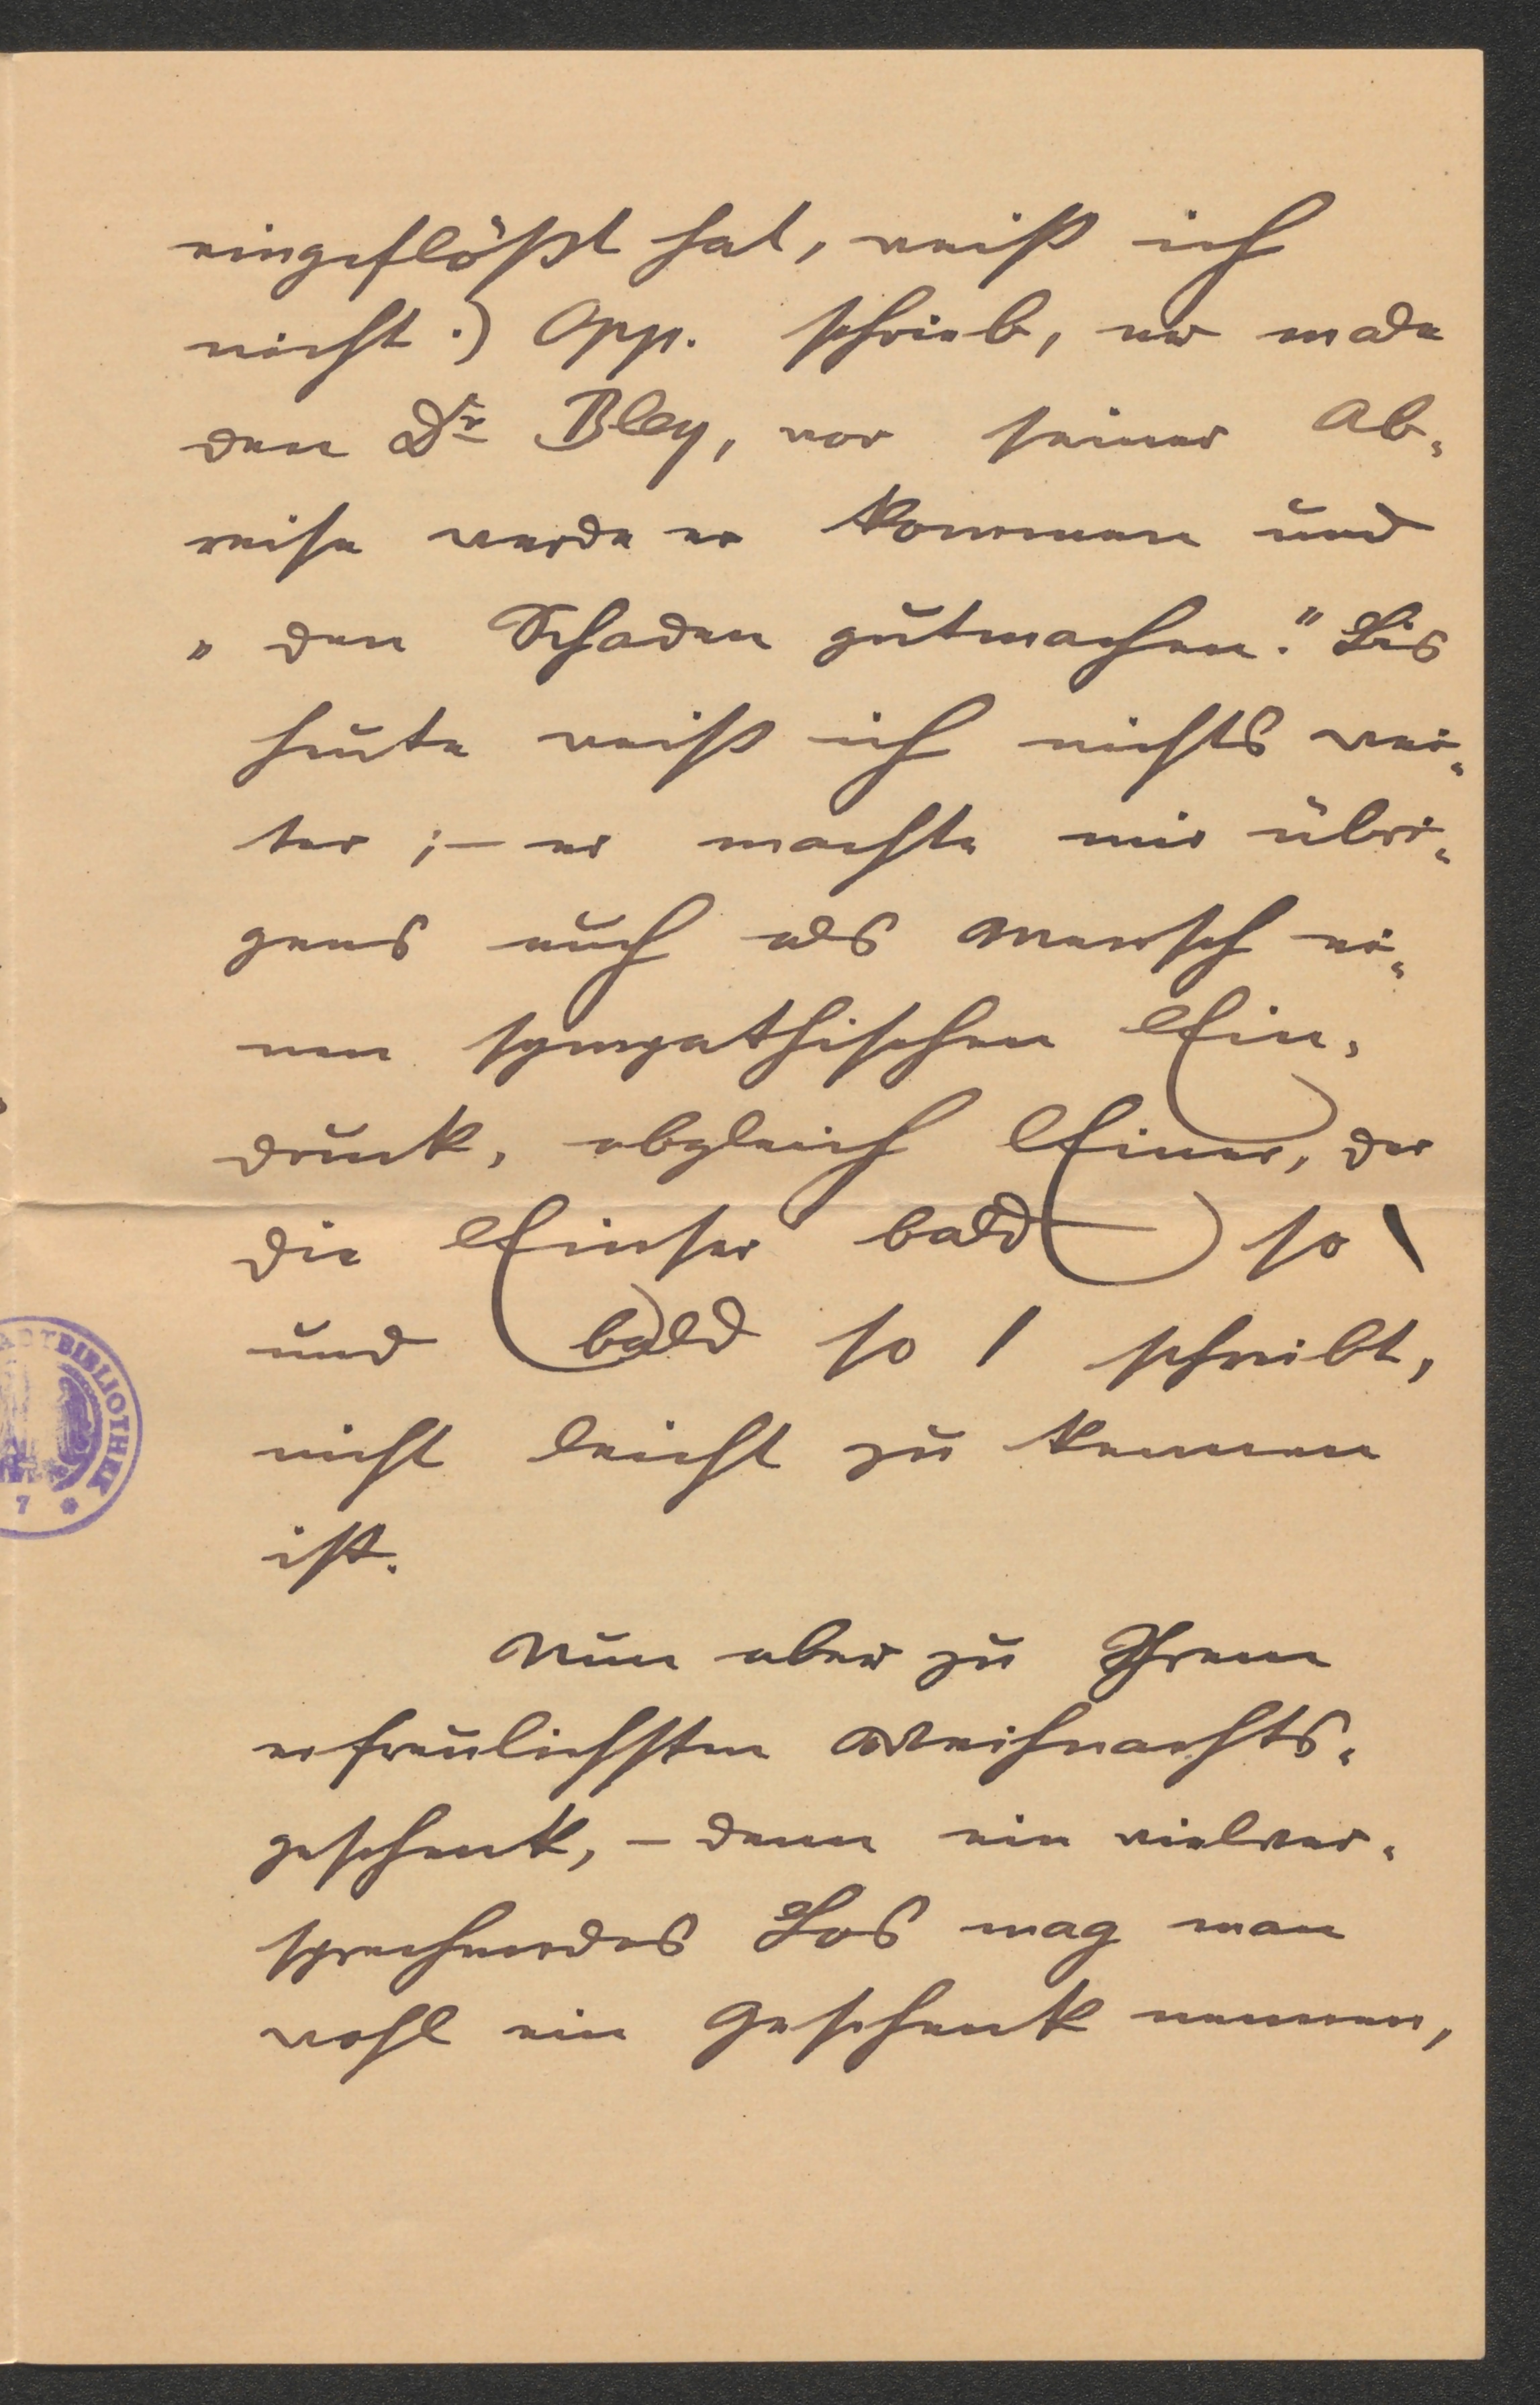 eingeflößt hat, weiß ich
nicht.) Opp. schrieb, er male
den Dr Bley, vor seiner Ab-
reise werde er kommen und
„den Schaden gutmachen." Bis
heute weiß ich nichts wei-
ter; – er machte mir übri-
gens auch als Mensch ei-
nen sympathischen Ein-
druck, obgleich Einer, der
die Einser bald so \
und bald so / schreibt,
nicht leicht zu kennen
ist.
Nun aber zu Ihrem
erfreulichsten Weihnachts-
geschenk, – denn ein vielver-
sprechendes Los mag man
wohl ein Geschenk nennen,
ADTBIBLIOTHEK
7 *